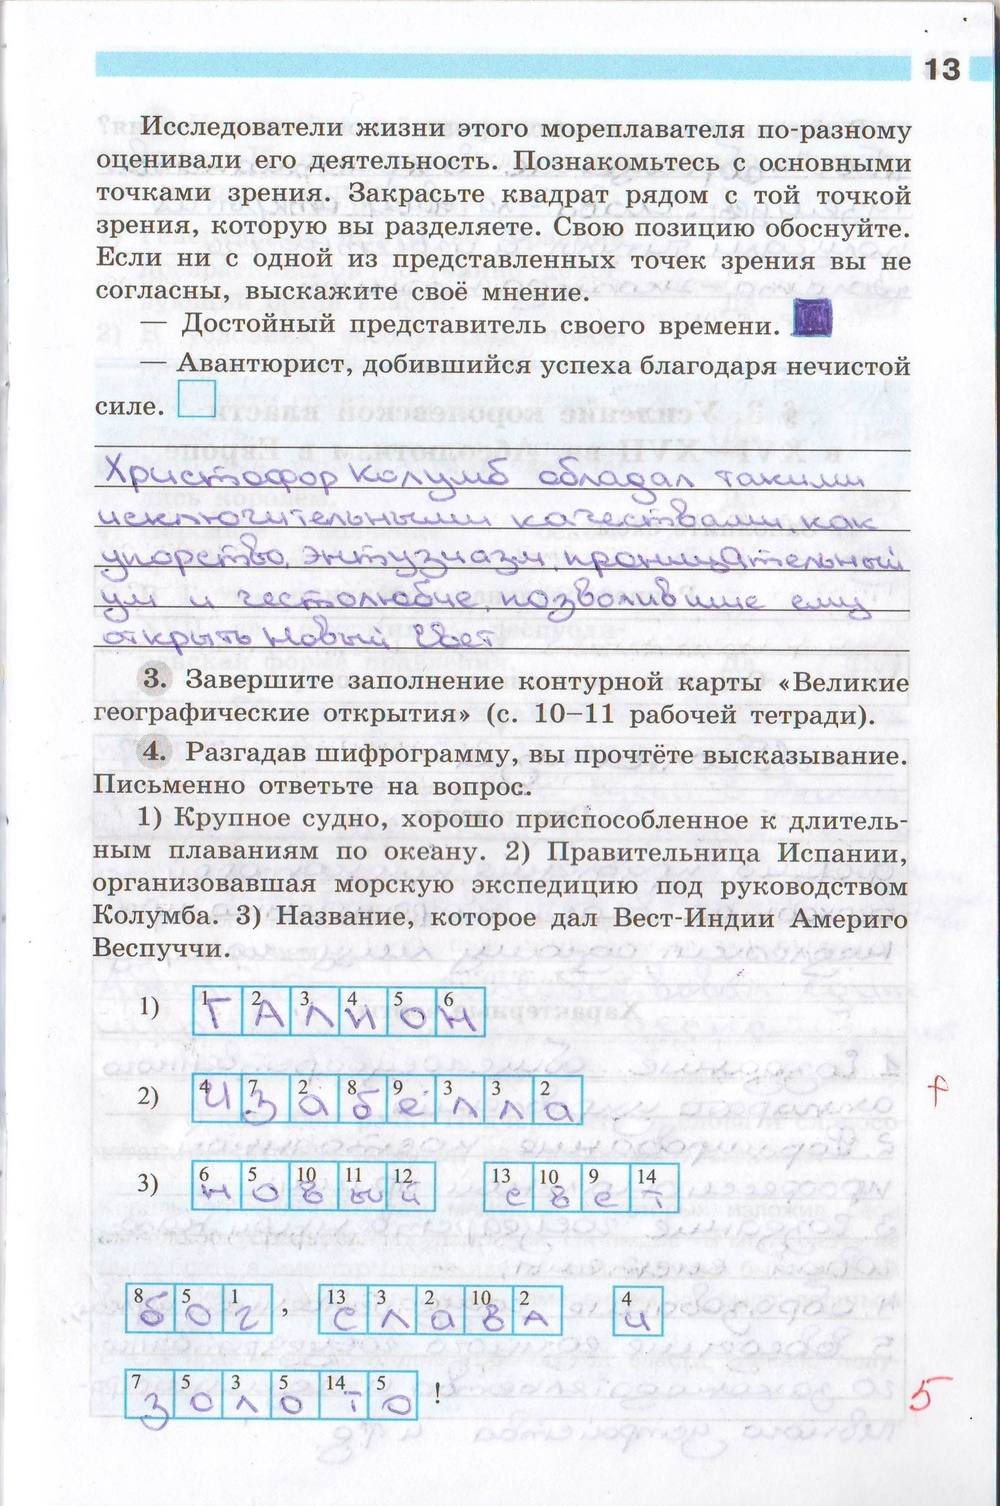 13
Исследователи жизни этого мореплавателя по-разному
оценивали его деятельность. Познакомьтесь с основными
точками зрения. Закрасьте квадрат рядом с той точкой
зрения, которую вы разделяете. Свою позицию обоснуйте.
Если ни с одной из представленных точек зрения вы не
согласны, выскажите своё мнение.
— Достойный представитель своего времени.
— Авантюрист, добившийся успеха благодаря нечистой
силе.
Христофор Колумб обладал такими
исключительными качествами как
упорство, энтузиазм, проницательный
ум и честолюбие, позволившие ему
открыть Новый Свет
3. Завершите заполнение контурной карты «Великие
географические открытия» (с. 10–11 рабочей тетради).
4. Разгадав шифрограмму, вы прочтёте высказывание.
Письменно ответьте на вопрос.
1) Крупное судно, хорошо приспособленное к длитель-
ным плаваниям по океану. 2) Правительница Испании,
организовавшая морскую экспедицию под руководством
Колумба. 3) Название, которое дал Вест-Индии Америго
Веспуччи.
1) 1 Г 2 А 3 Л 4 И 5 О 6 Н
2) 4 И 7 З 2 а 8 б 9 е 3 л 3 л 2 а
3) 6 н 5 о 10 в 11 ы 12 й 13 с 10 в 9 е 14 т
8 б 5 о 1 г , 13 с 3 л 2 а 10 в 2 а 4 и
7 з 5 о 3 л 5 о 14 т 5 о !
5